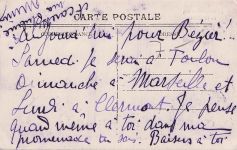 CARTE POSTALE
aujourd'hui pour Bézier!
Samedi je serai à Toulon
Dimanche à Marseille et
Lundi à Clermont. Je pense
quand même à toi dans ma
promenade du soir. Baisers à toi